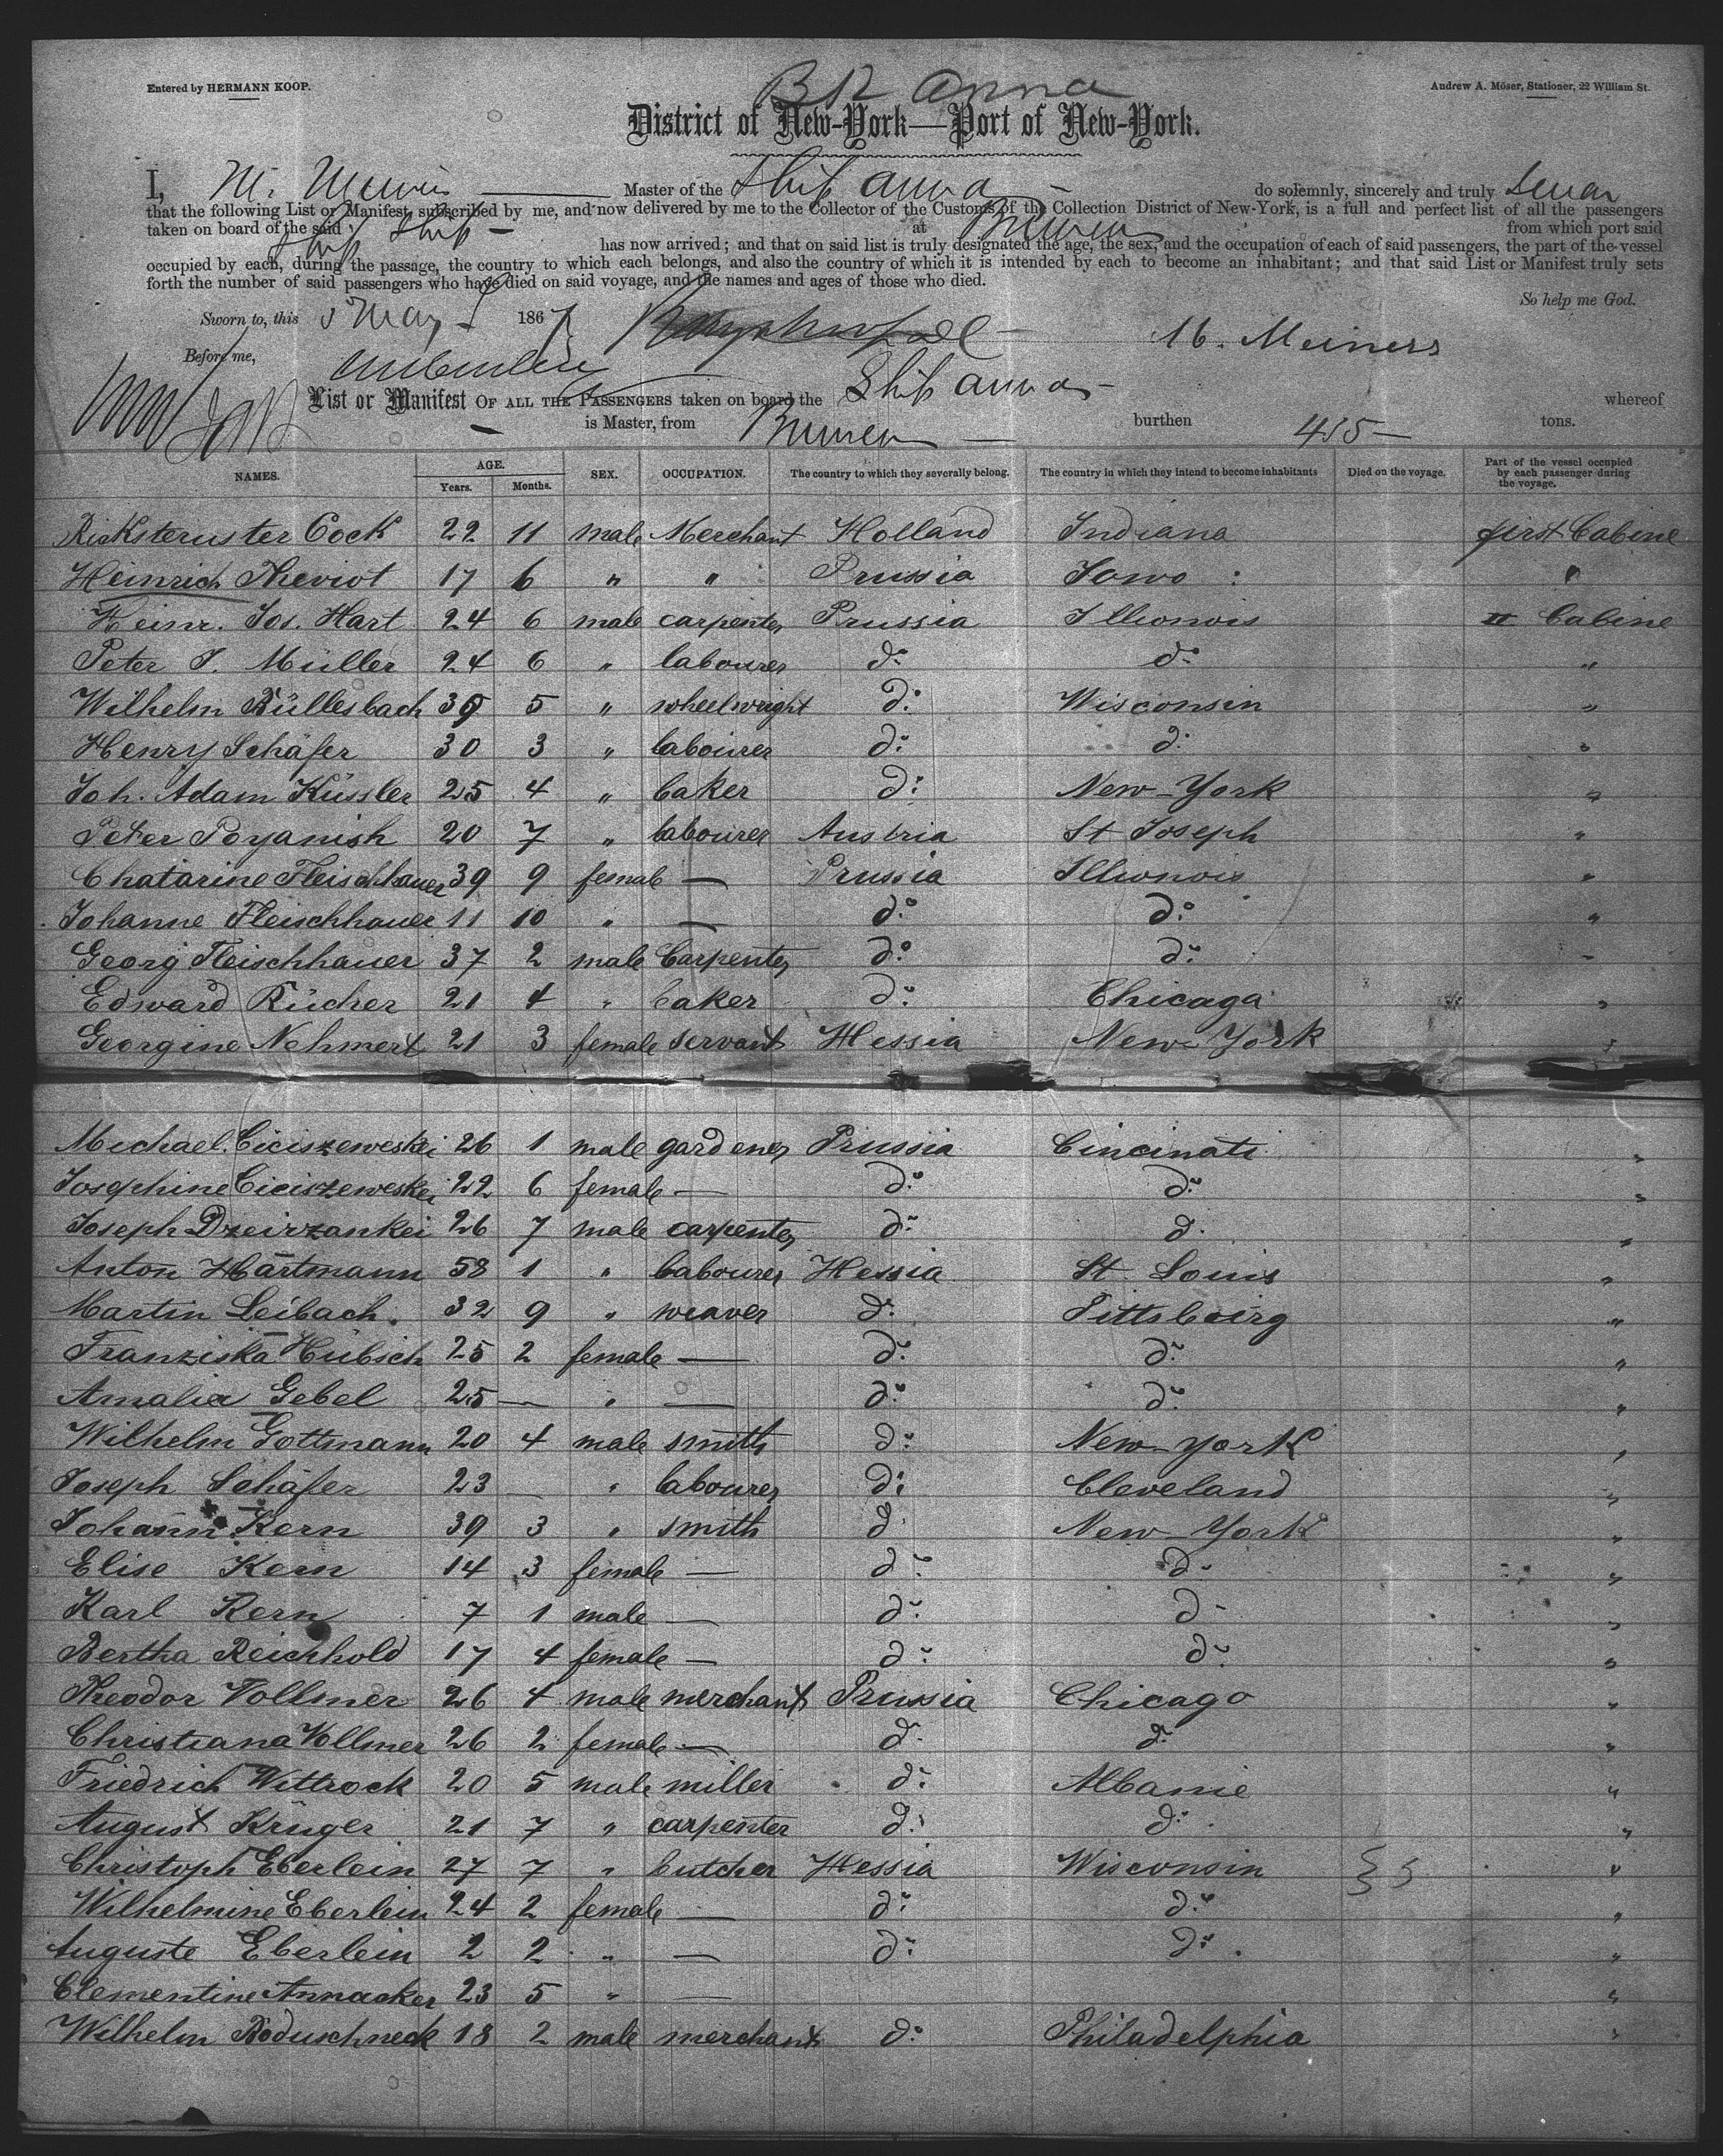 BR Anna
Entered by HERMANN KOOP.
Andrew A. Möser, Stationer, 22 William St.
District of New-York—Port of New-York.
I, M. Meiners Master of the Ship Anna do solemnly, sincerely and truly swear
that the following List or Manifest, subscribed by me, and now delivered by me to the Collector of the Customs of the Collection District of New-York, is a full and perfect list of all the passengers
taken on board of the said Ship at Bremen from which port said
Ship has now arrived; and that on said list is truly designated the age, the sex, and the occupation of each of said passengers, the part of the vessel
occupied by each, during the passage, the country to which each belongs, and also the country of which it is intended by each to become an inhabitant; and that said List or Manifest truly sets
forth the number of said passengers who have died on said voyage, and the names and ages of those who died.
So help me God.
Sworn to, this 3 May 1867
M. Meiners
Before me,
List or Manifest OF ALL THE PASSENGERS taken on board the Ship Anna whereof
is Master, from Bremen burthen 415 tons.
NAMES. AGE. Years. Months. SEX. OCCUPATION. The country to which they severally belong. The country in which they intend to become inhabitants Died on the voyage. Part of the vessel occupied by each passenger during the voyage.
Cock 22 11 male Merchant Holland Indiana first Cabine
Heinrich Theviot 17 6 " " Prussia Iowo "
Heinr. Jos. Hart 24 6 male carpenter Prussia Illionois II Cabine
Peter J. Müller 24 6 " labourer do do "
Wilhelm Büllesbach 39 5 " wheelwright do Wisconsin "
Henry Schäfer 30 3 " labourer do do "
Joh. Adam Küssler 25 4 " baker do New-York "
Peter Poyanish 20 7 " labourer Austria St Joseph "
Chatarine Fleischhauer 39 9 female — Prussia Illionois "
Johanne Fleischhauer 11 10 " — do do "
Georg Fleischhauer 37 2 male Carpenter do do "
Edward Rücher 21 4 " baker do Chicaga "
Georgine Nehmert 21 3 female servant Hessia New-York "
Michael Ciciszeweskei 26 1 male gardener Prussia Cincinati "
Josephine Ciciszeweskei 22 6 female — do do "
Joseph Dzeirzankei 26 7 male carpenter do do "
Anton Hartmann 58 1 " labourer Hessia St. Louis "
Martin Leibach 32 9 " weaver do Pittsboirg "
Franziska Hübsch 25 2 female — do do "
Amalia Gebel 25 — " — do do "
Wilhelm Gottmann 20 4 male smith do New-York "
Joseph Schäfer 23 — " labourer do Cleveland "
Johann Kern 39 3 " smith do New York "
Elise Kern 14 3 female — do do "
Karl Kern 7 1 male — do do "
Bertha Reichhold 17 4 female — do do "
Theodor Vollmer 26 4 male merchant Prussia Chicago "
Christiana Vollmer 26 2 female — do do "
Friedrich Wittrock 20 5 male miller do Albanie "
August Krüger 21 7 " carpenter do do "
Christoph Eberlein 27 7 " butcher Hessia Wisconsin "
Wilhelmine Eberlein 24 2 female — do do "
Auguste Eberlein 2 2 " — do do "
Clementine Annacker 23 5 " — "
Wilhelm Boduschneck 18 2 male merchant do Philadelphia "